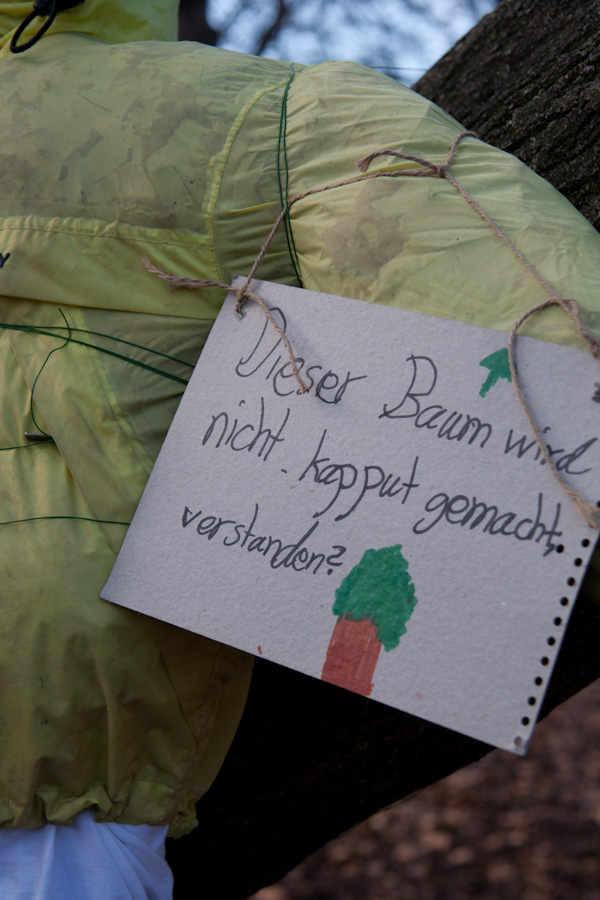 Dieser Baum wird
nicht kapput gemacht,
verstanden?